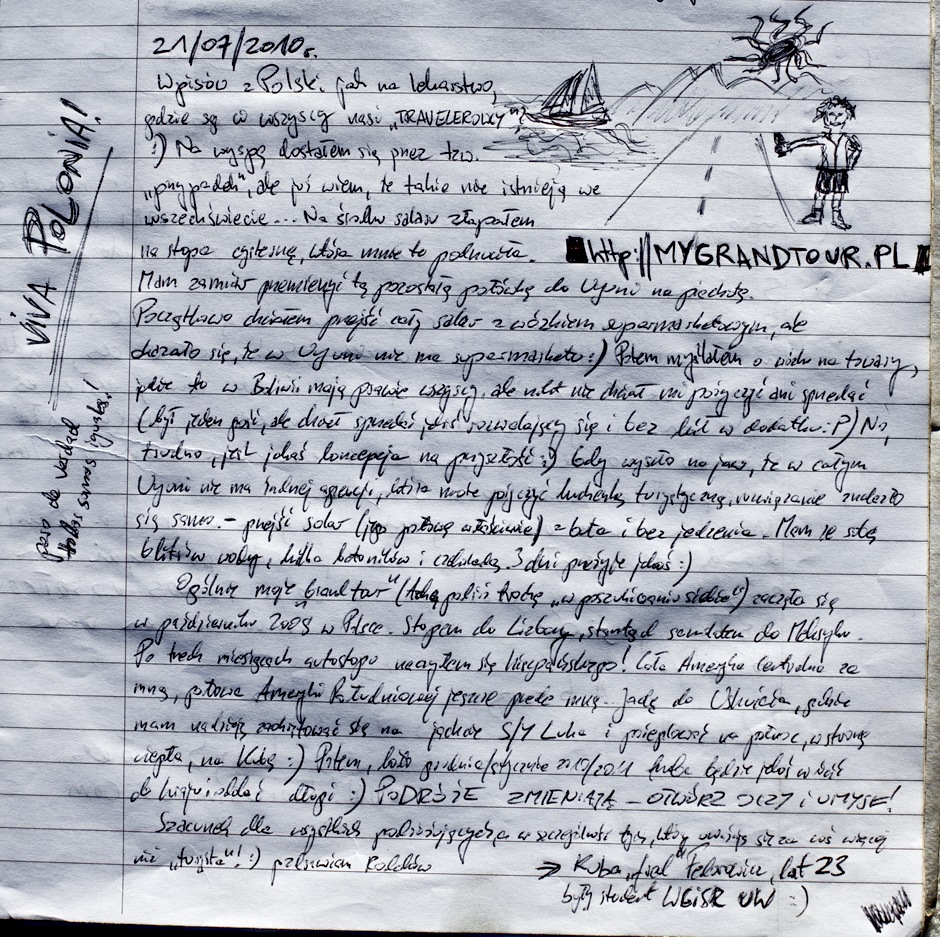 21/07/2010r.
Wpisów z Polski, jak na lekarstwo,
gdzie są ci wszyscy nasi "TRAVELEROWCY"
:) Na wyspę dostałem się przez tzw.
"przypadek", ale już wiem, że takie nie istnieją we
wszechświecie... Na środku salaru złapałem
na stopa cysternę, która mnie tu podrzuciła.
http://MYGRANDTOUR.PL
Mam zamiar przemierzyć tą pozostałą połówkę do Uyuni na piechotę.
Początkowo chciałem przejść cały salar z wózkiem supermarketowym, ale
okazało się, że w Uyuni nie ma supermarketu :) Potem myślałem o wózku na towary,
jakie tu w Boliwii mają prawie wszyscy, ale nikt nie chciał mi pożyczyć ani sprzedać
(był jeden gość, ale chciał sprzedać jakiś rozwalający się i bez kół w dodatku :P) No,
trudno, jest jakaś koncepcja na przyszłość :) Gdy wyszło na jaw, że w całym
Uyuni nie ma żadnej agencji, która może pożyczyć kuchenkę turystyczną, rozwiązanie znalazło
się samo - przejść salar (jego połowę właściwie) z buta i bez jedzenia. Mam ze sobą
litrów wody, kilka batoników i czekoladę. 3 dni przeżyję jakoś :)
Ogólnie moje "Grand tour" (taką podróż trochę "w poszukiwaniu siebie") zaczęła się
w październiku 2009 w Polsce. Stopem do Lizbony, stamtąd samolotem do Meksyku.
Po trzech miesiącach autostopu nauczyłem się hiszpańskiego! Cała Ameryka Centralna za
mną, połowa Ameryki Południowej jeszcze przede mną. Jadę do Ushuaia, gdzie
mam nadzieję zaokrętować się na jachcie S/Y Luka i przepłynąć na północ, w stronę
ciepła, na Kubę :) Potem, koło grudnia/stycznia 2010/2011 trzeba będzie jakoś wrócić
do kraju i oddać długi :) PODRÓŻE ZMIENIAJĄ - OTWÓRZ OCZY i UMYSŁ!
Szacunek dla wszystkich podróżujących, a w szczególności tych, którzy uważają się za coś więcej
niż "turysta"! :) pozdrawiam Rodaków
→ Kuba, lat 23
były student WGiSR UW :)
VIVA POLONIA!